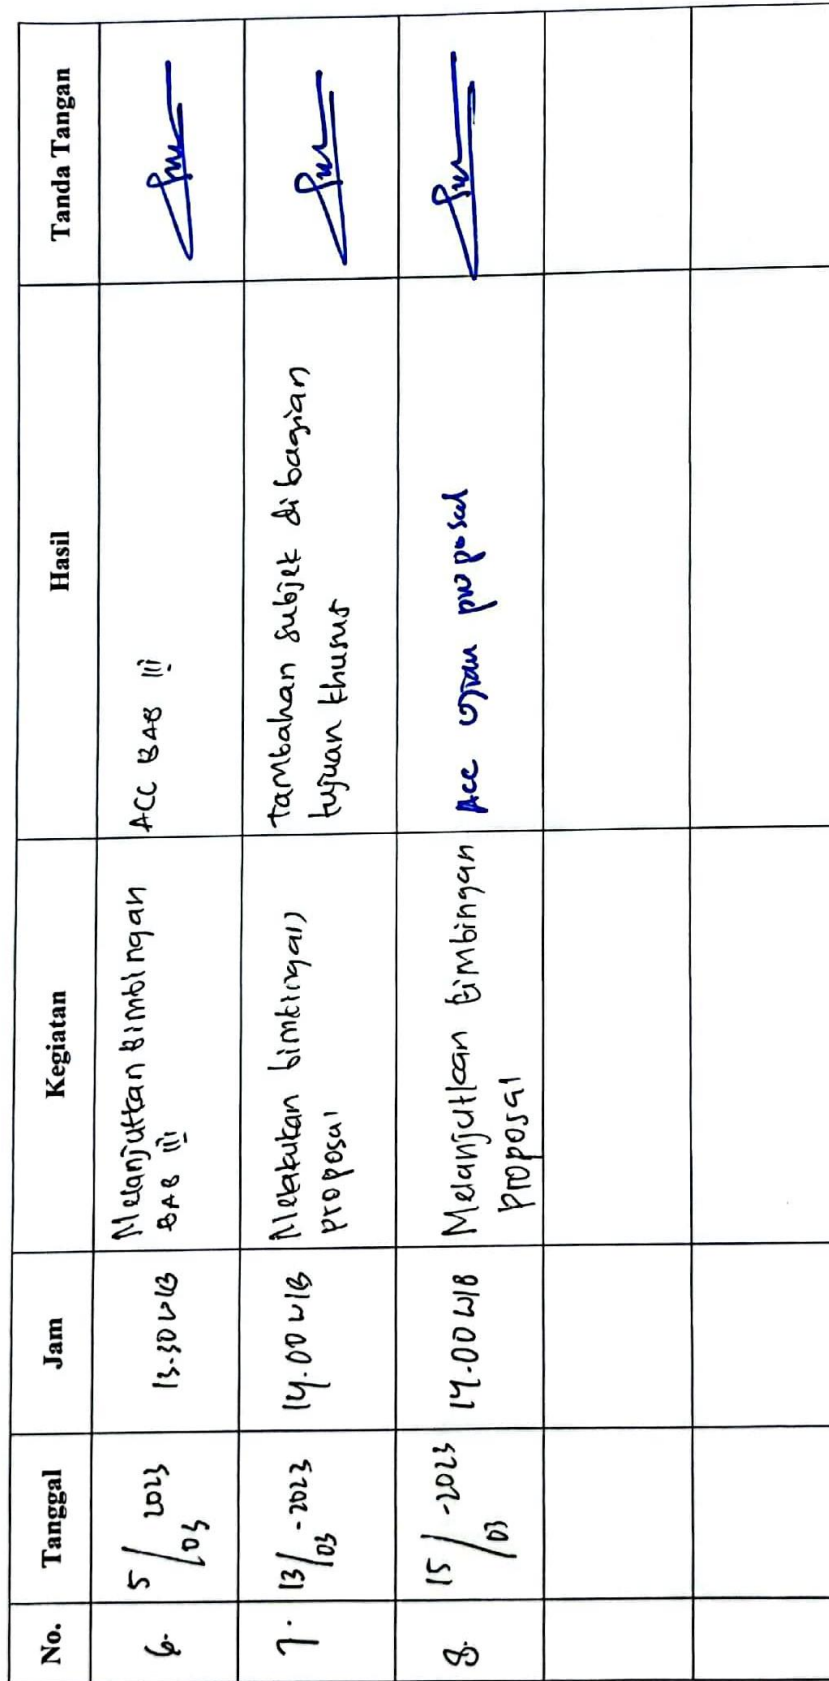 No. Tanggal Jam Kegiatan Hasil Tanda Tangan
6. 5/03 2023 13.30 WIB Melanjutkan Bimbingan BAB III ACC BAB III
7. 13/03-2023 14.00 WIB Melakukan bimbingan proposal tambahan subjek dibagian tujuan khusus
8. 15/03-2023 14.00 WIB Melanjutkan bimbingan proposal Acc ujian proposal